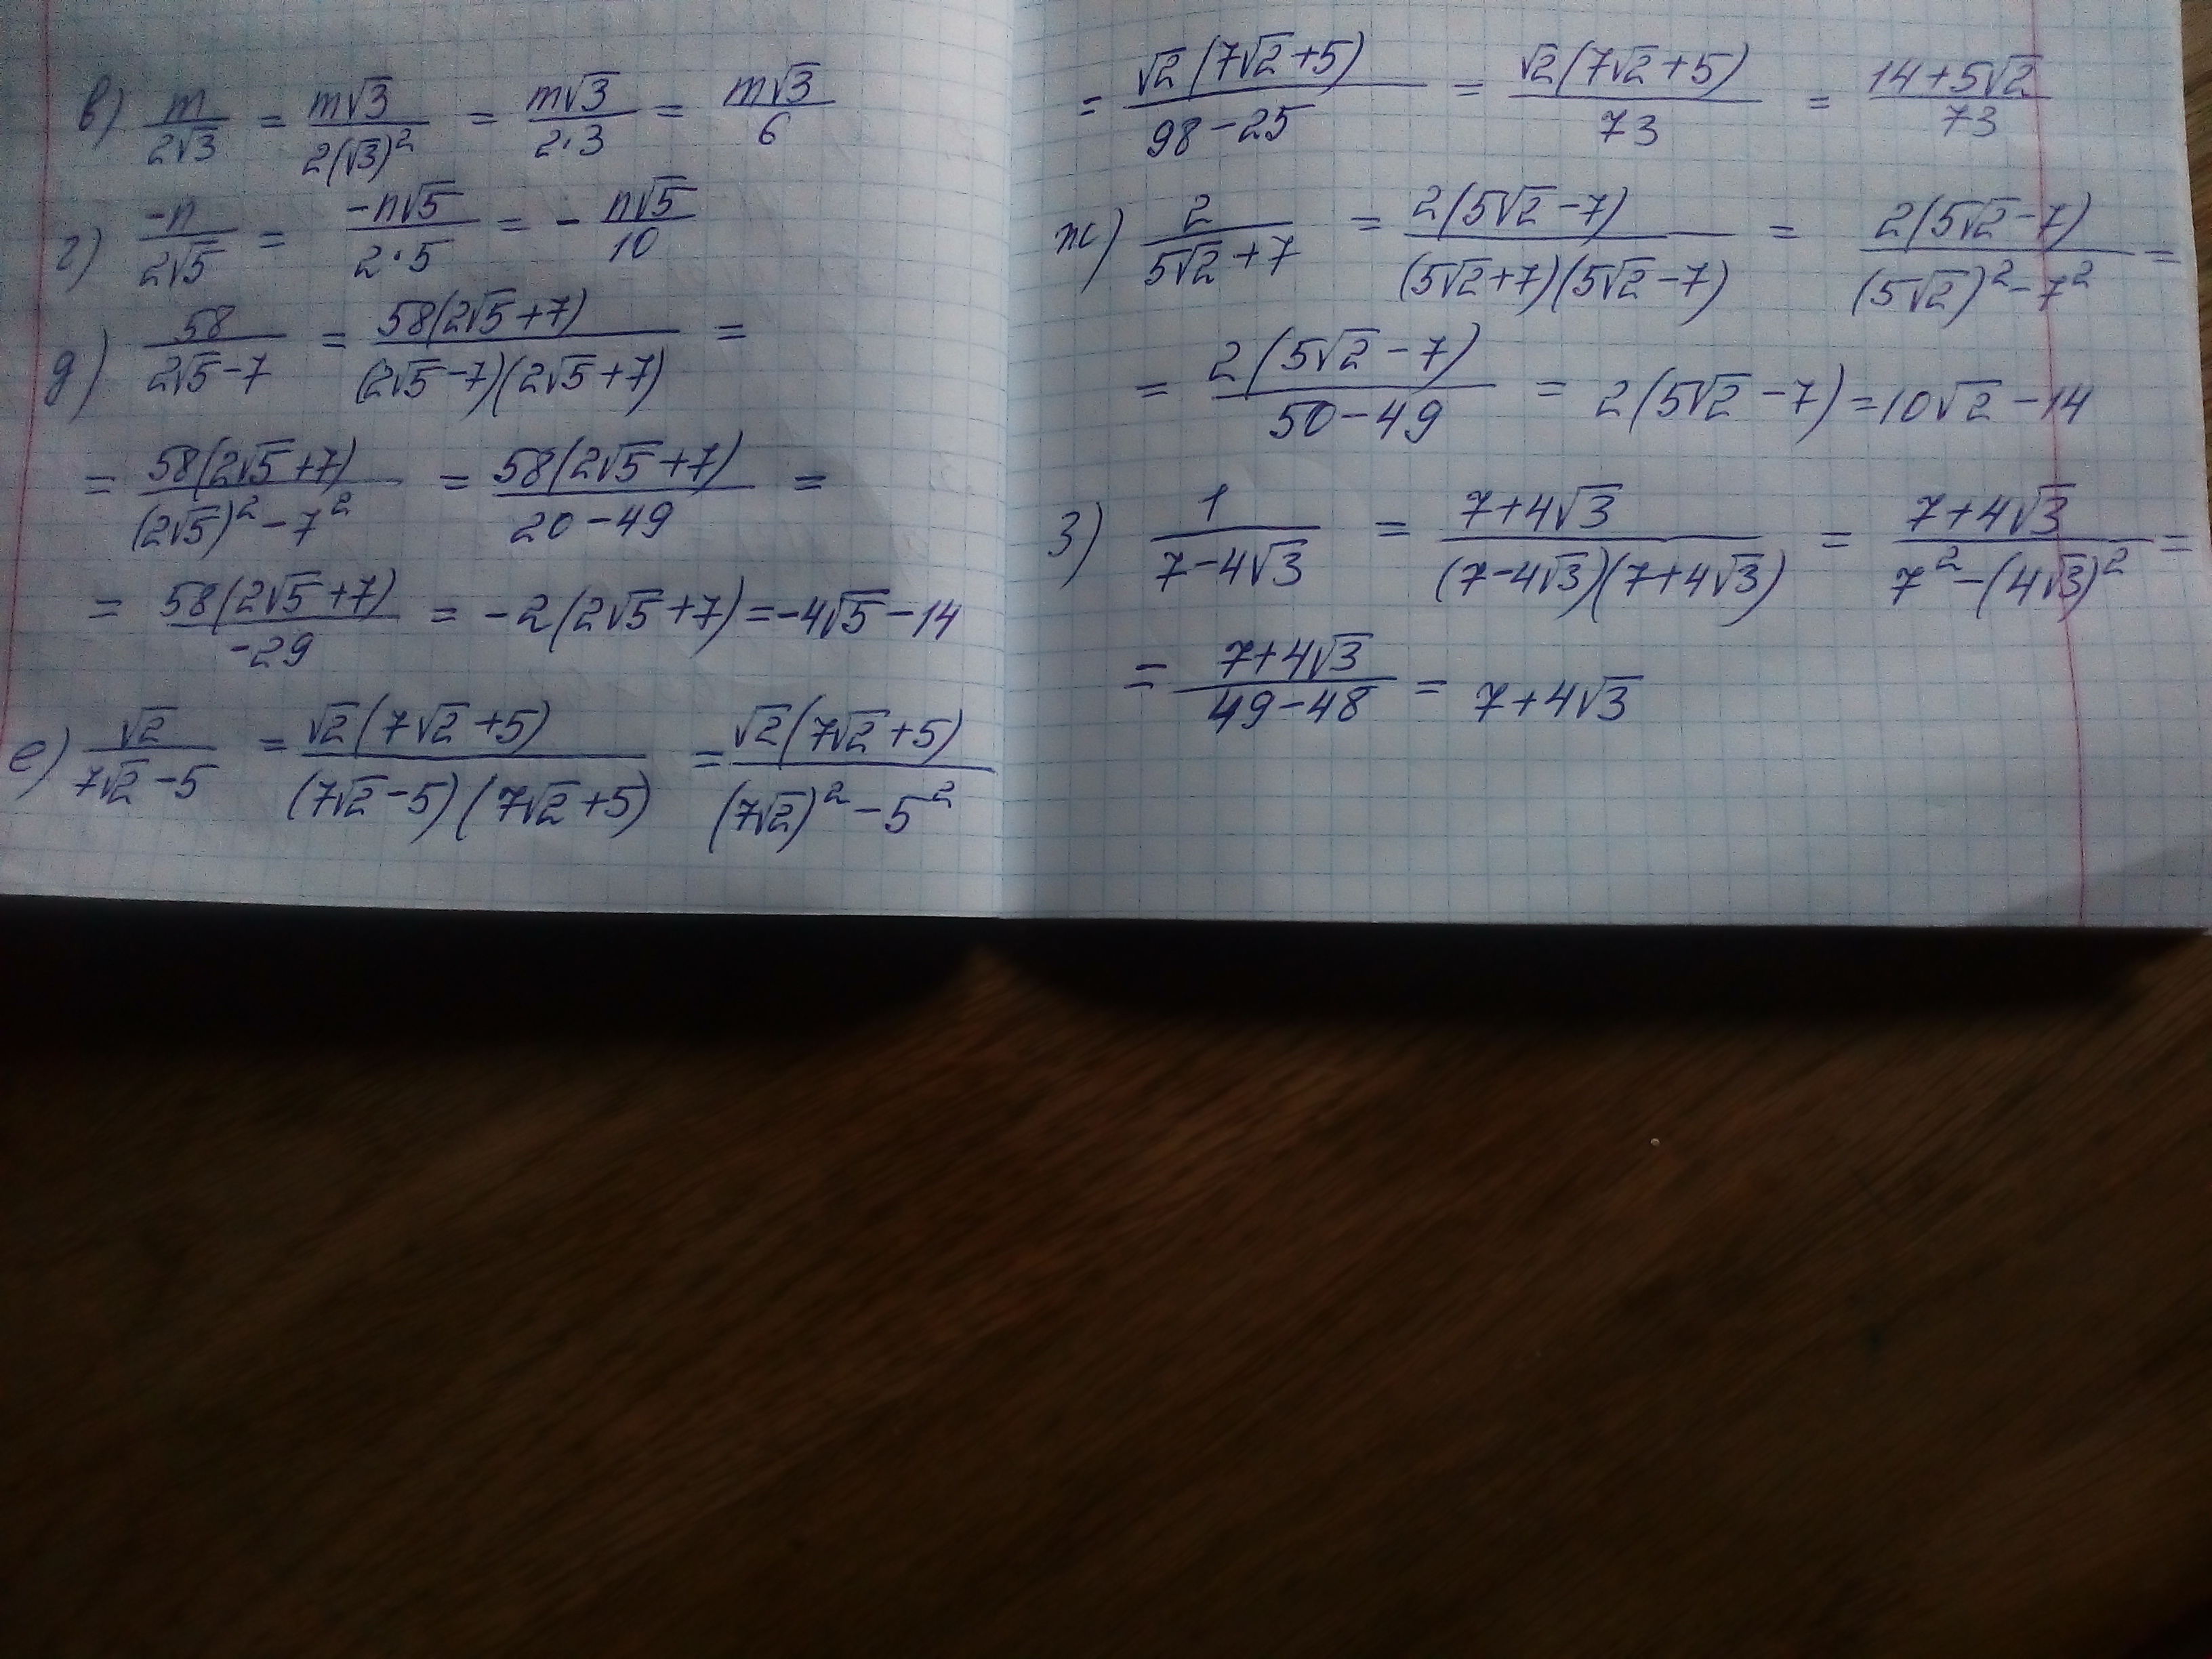 в) m/(2√3) = m√3/(2(√3)²) = m√3/(2·3) = m√3/6
г) -n/(2√5) = -n√5/(2·5) = - n√5/10
д) 58/(2√5-7) = 58(2√5+7)/((2√5-7)(2√5+7)) =
= 58(2√5+7)/((2√5)²-7²) = 58(2√5+7)/(20-49) =
= 58(2√5+7)/(-29) = -2(2√5+7)=-4√5-14
е) √2/(7√2-5) = √2(7√2+5)/((7√2-5)(7√2+5)) = √2(7√2+5)/((7√2)²-5²)
= √2(7√2+5)/(98-25) = √2(7√2+5)/73 = (14+5√2)/73
ж) 2/(5√2+7) = 2(5√2-7)/((5√2+7)(5√2-7)) = 2(5√2-7)/((5√2)²-7²) =
= 2(5√2-7)/(50-49) = 2(5√2-7)=10√2-14
з) 1/(7-4√3) = (7+4√3)/((7-4√3)(7+4√3)) = (7+4√3)/(7²-(4√3)²) =
= (7+4√3)/(49-48) = 7+4√3